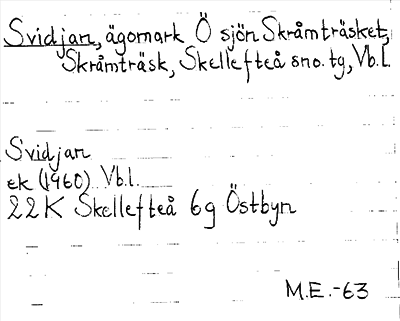 Svidjan, ägomark Ö sjön Skråmträsket,
Skråmträsk, Skellefteå sno. tg, Vb.l.
Svidjan
ek (1960) Vb.l.
22K Skellefteå 6g Östbyn
M.E.-63